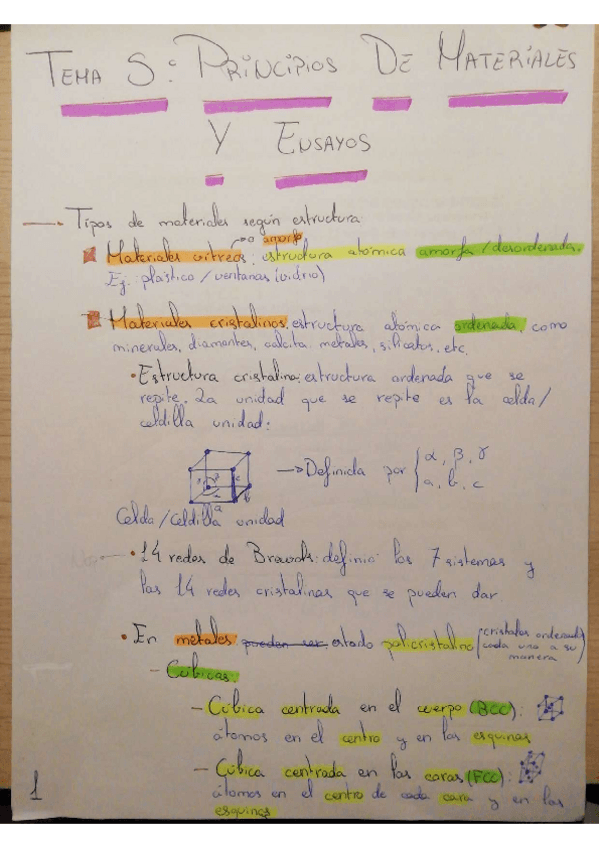 TEMA 5: PRINCIPIOS DE MATERIALES
Y ENSAYOS
Tipos de materiales según estructura:
→ o amorfo
Materiales vítreos: estructura atómica amorfa/desordenada.
Ej: plástico/ventanas (vidrio)
Materiales cristalinos: estructura atómica ordenada, como
minerales, diamantes, calcita. metales, silicatos, etc.
• Estructura cristalina: estructura ordenada que se
repite. La unidad que se repite es la celda/
celdilla unidad:
→ Definida por { α, β, γ
a, b, c
Celda/Celdilla unidad
• 14 redes de Bravais: definió los 7 sistemas y
las 14 redes cristalinas que se pueden dar.
• En metales: pueden ser estado policristalino (cristales ordenados
cada uno a su
manera)
- Cúbicas:
- Cúbica centrada en el cuerpo (BCC):
átomos en el centro y en las esquinas
- Cúbica centrada en las caras (FCC):
átomos en el centro de cada cara y en las
esquinas
1